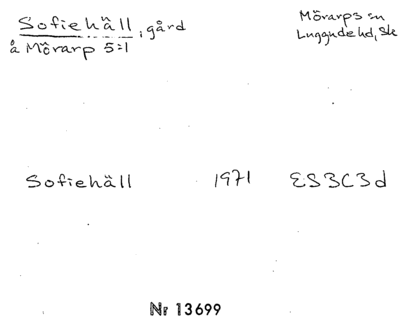 Sofiehäll, gård
å Mörarp 5:1
Mörarps sn
Luggude hd, Sk
Sofiehäll 1971 ES3C3d
Nr 13699